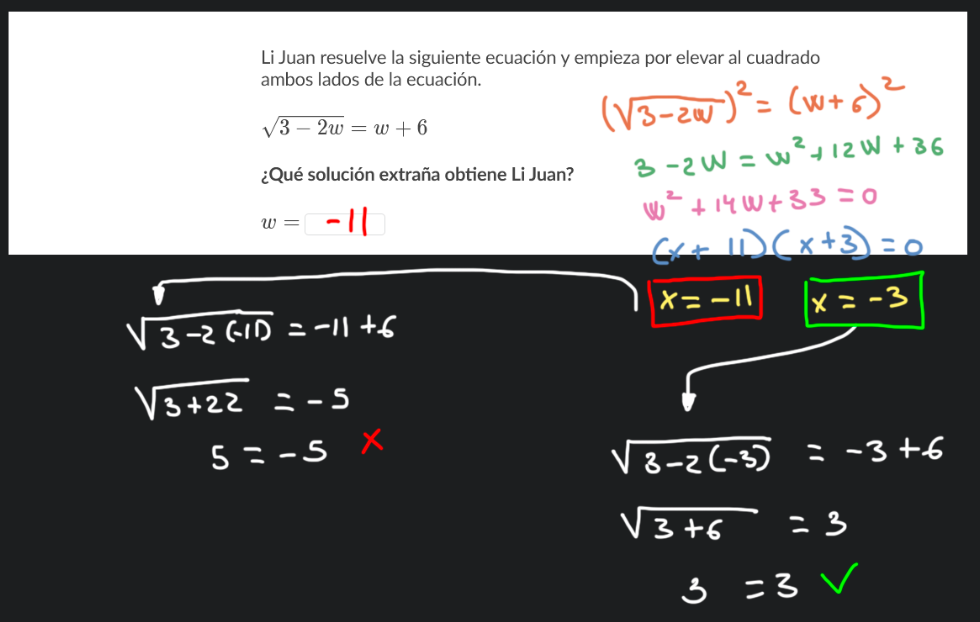 Li Juan resuelve la siguiente ecuación y empieza por elevar al cuadrado
ambos lados de la ecuación.
√(3 − 2w) = w + 6
¿Qué solución extraña obtiene Li Juan?
w = -11
(√(3-2w))² = (w+6)²
3 -2w = w² + 12w + 36
w² + 14w + 33 = 0
(x + 11)(x+3) = 0
x = -11
x = -3
√(3-2(-11)) = -11 +6
√(3+22) = -5
5 = -5 X
√(3-2(-3)) = -3 +6
√(3+6) = 3
3 = 3 ✓